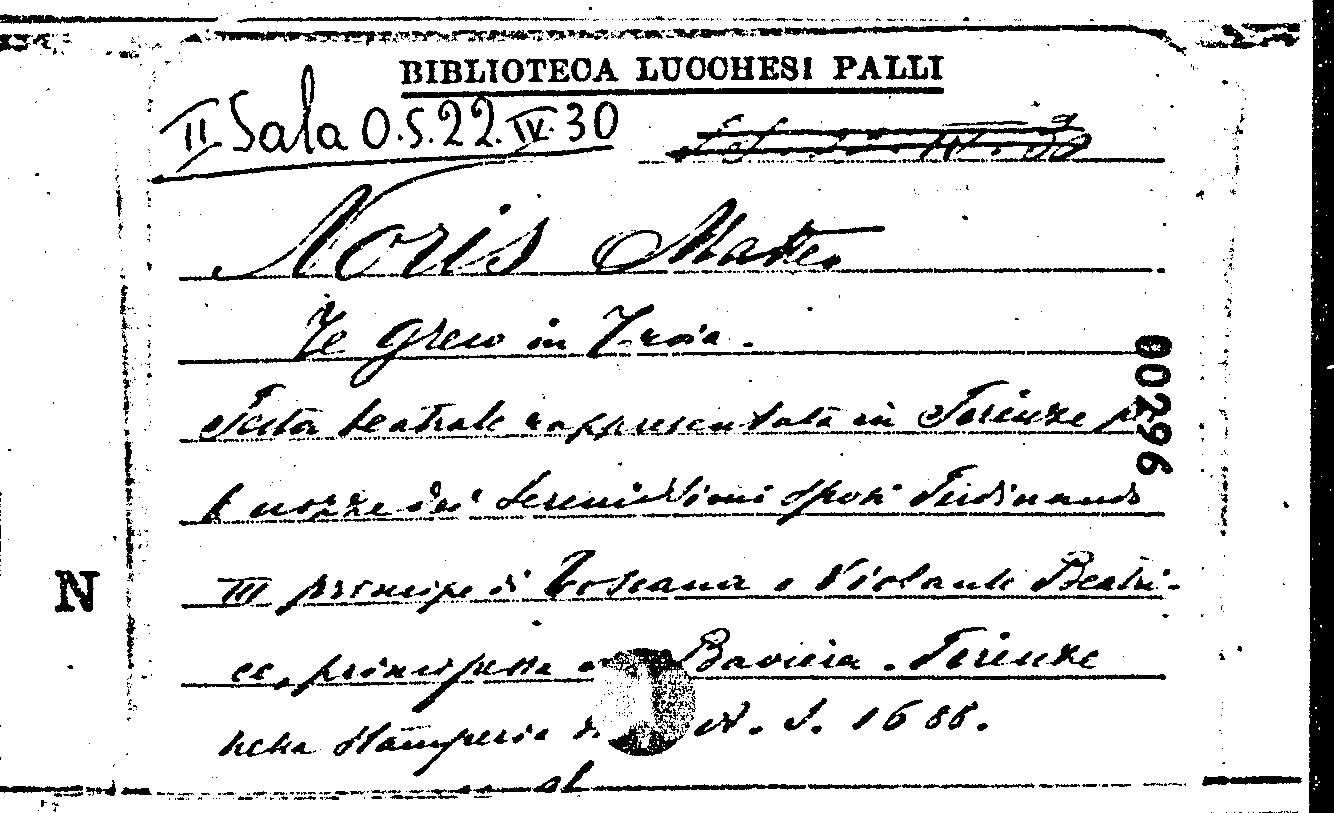 BIBLIOTECA LUCCHESI PALLI
II Sala O.S.22.IV.30
Noris Matteo
Il greco in Troia.
Festa teatrale rappresentata in Firenze p
le nozze dei Serenissimi sposi Ferdinando
III principe di Toscana e Violante Beatri-
ce, principessa Baviera. Firenze
nella stamperia di S. 1688.
00296
N